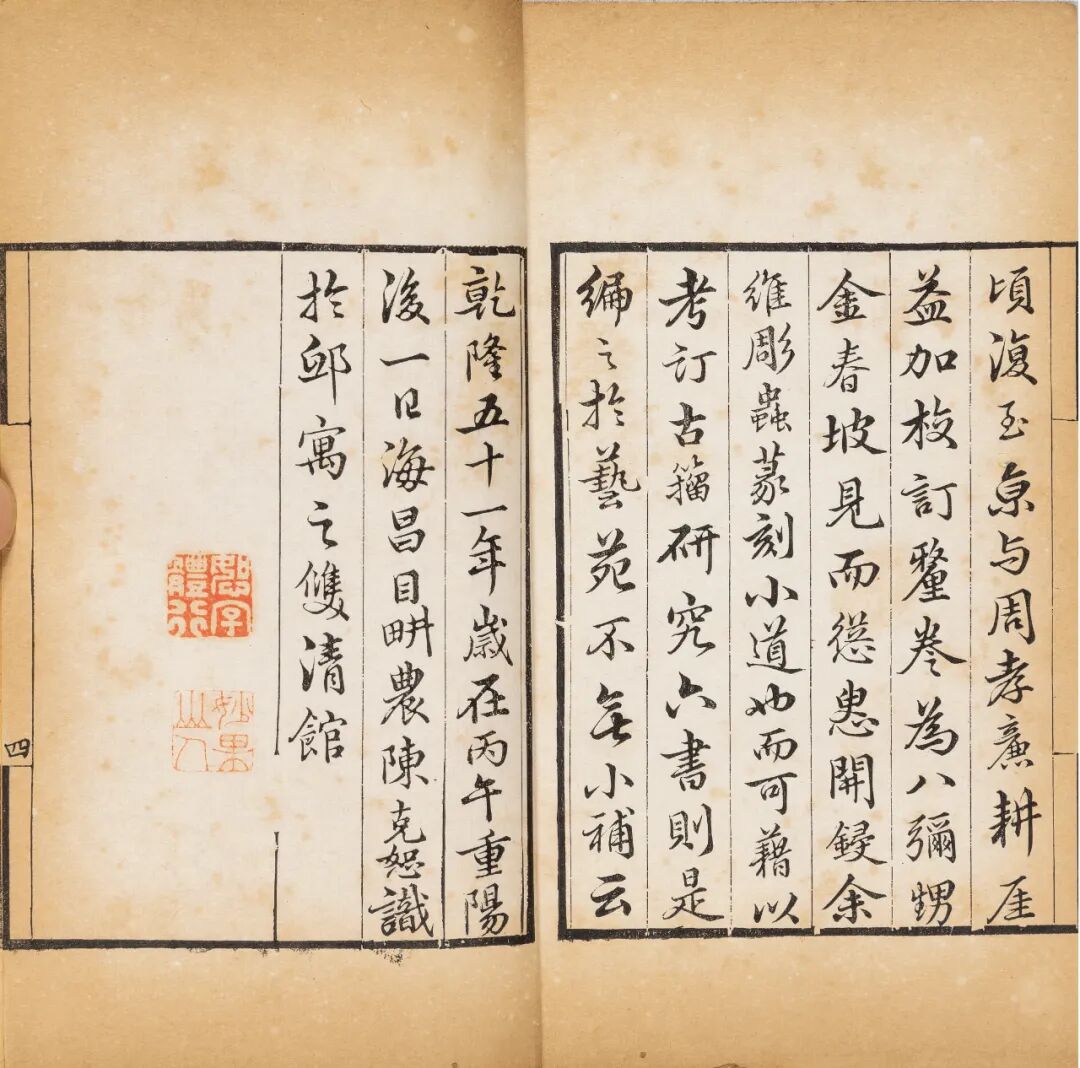 頃復至京与周孝廉耕厓
益加校訂釐卷為八彌甥
金春坡見而慫恿開鋟余
維彫蟲篆刻小道也而可藉以
考訂古籀研究六書則是
編之於藝苑不無小補云
乾隆五十一年歲在丙午重陽
後一日海昌目畊農陳克恕識
於邱寓之雙清館
恕字體行
妙果山人
四